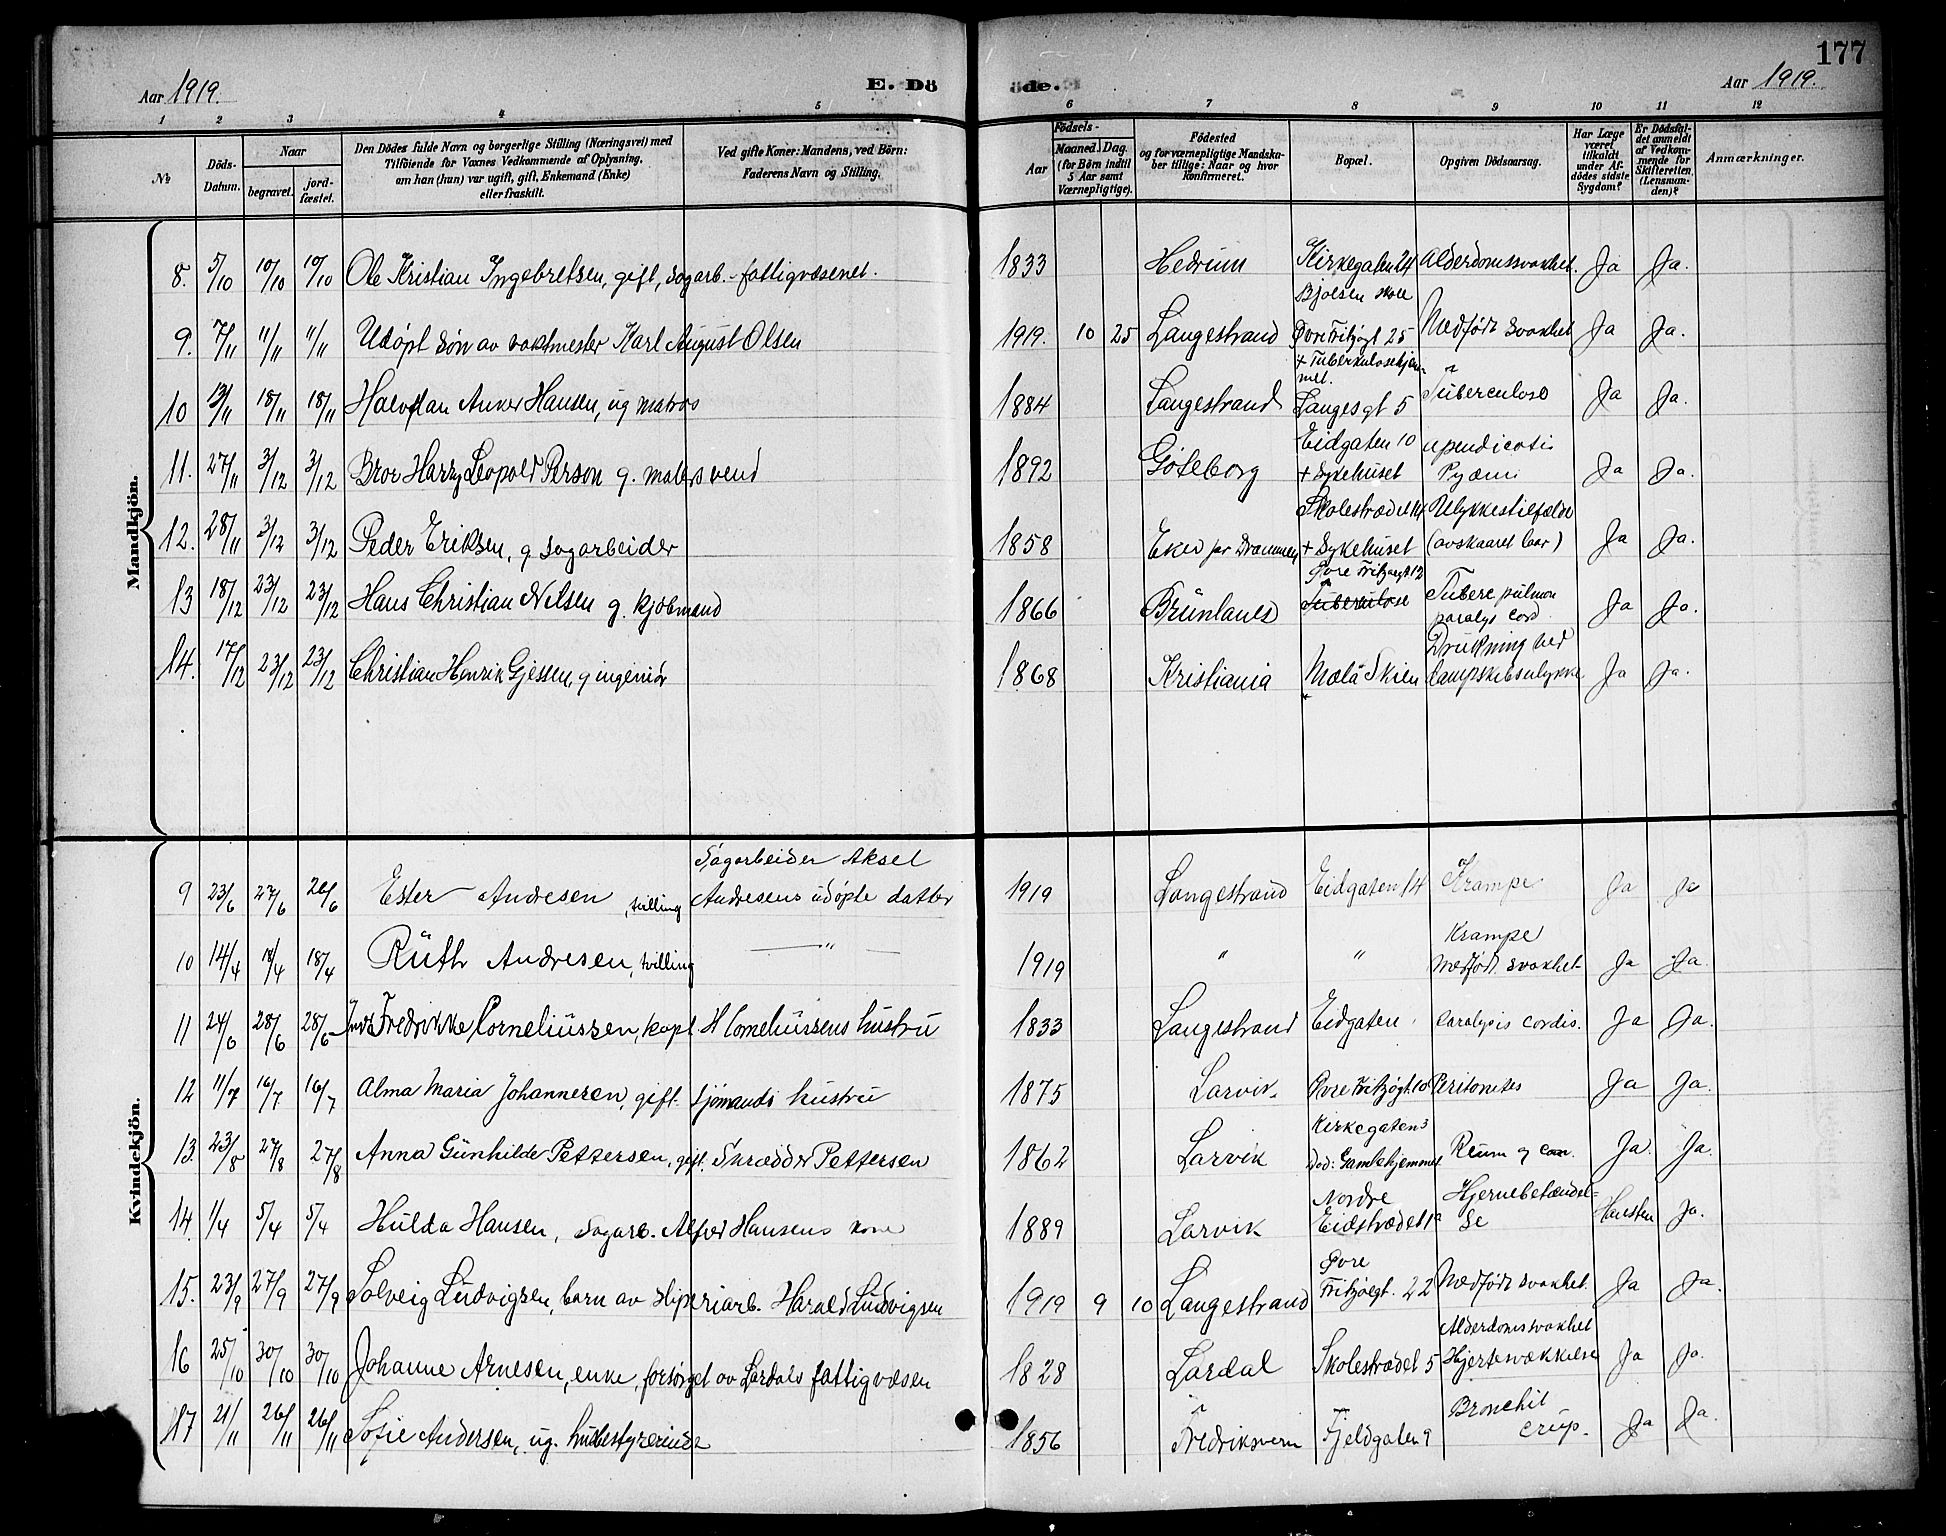 177
Aar 1919.
E. Döde.
Aar 1919.
1 2 3 4 5 6 7 8 9 10 11 12
№
Döds-Datum.
Naar
begravet.
jordfæstet.
Den Dödes fulde Navn og borgerlige Stilling (Næringsvei) med
Tilföiende for Voxnes Vedkommende af Oplysning,
om han (hun) var ugift, gift, Enkemand (Enke)
eller fraskilt.
Ved gifte Koner: Mandens, ved Börn:
Faderens Navn og Stilling.
Födsels-
Aar
Maaned. Dag.
(for Börn indtil
5 Aar samt
Værnepligtige).
Födested
og for værnepligtige Mandskaber tillige: Naar og hvor
konfirmeret.
Bopæl.
Opgiven Dödsaarsag.
Har Læge
været
tilkaldt
under Afdödes sidste
Sygdom?
Er Dödsfaldet anmeldt
af Vedkommende for
Skifteretten
(Lensmanden)?
Anmærkninger.
Mandkjön.
8. 5/10 10/10 10/10 Ole Kristian Ingebretsen, gift, sagarb. - fattigvæsenet. 1833 Hedrum Kirkegaten 24 Alderdomssvakhet. Ja Ja.
Bjølsen skole
9. 7/11 11/11 11/11 Udøpt søn av vaktmester Karl August Olsen 1919. 10 25 Langestrand Øvre Fritzøgt 25 Medfødt svakhet Ja Ja.
+ Tuberkulosehjemmet.
10 13/11 18/11 18/11 Halvdan Anker Hansen, ug matros 1884 Langestrand Langesgt 5 Tuberculose Ja Ja.
11. 27/11 3/12 3/12 Bror Harry Leopold Person g. malersvend 1892 Göteborg Eidgaten 10 + Sykehuset Pyæmi Ja Ja.
12. 28/11 3/12 3/12 Peder Eriksen, g sagarbeider 1858 Eker pr Drammen Skolestrædet + Sykehuset Ulykkestilfælde (avskaaret laar) Ja Ja.
13 18/12 23/12 23/12 Hans Christian Nilsen g. kjøbmand 1866 Brunlanes Øvre Fritzøegt 12 Tuberkulose Tuberc pulmon paralys cord Ja Ja.
14. 17/12 23/12 23/12 Christian Henrik Gjessen, g ingeniør 1868 Kristiania Mæla Skien Drukning ved dampskibsulykke Ja Ja.
Kvindekjön.
Sagarbeider Aksel
9 23/6 27/6 26/6 Ester Andresen, tvilling Andresens udøpte datter 1919 Langestrand Eidgaten 14 Krampe Ja Ja
10 14/4 18/4 18/4 Ruth Andresen, tvilling — " — 1919 " " Krampe Medfødt svakhet Ja Ja.
11 24/6 28/6 28/6 Fredrikke Corneliussen, kapt H Corneliussens hustru 1833 Langestrand Eidgaten Paralysis cordis. Ja Ja.
12 11/7 16/7 16/7 Alma Maria Johannesen, gift. sjømands hustru 1875 Larvik. Øvre Fritzøgt 10 Peritonites Ja Ja.
13. 23/8 27/8 27/8 Anna Gunhilde Pettersen, gift. Skrædder Pettersen 1862 Larvik Kirkegaten 3 Død: Gamlehjemmet Ja. Ja.
14. 1/4 5/4 5/4 Hulda Hansen, Sagarb. Alfred Hansens kone 1889 Larvik Nordre Eidstrædet Hjernebetændelse Ja.
15. 23/9 27/9 27/9 Solveig Ludvigsen, barn av sliperiarb. Harald Ludvigsen 1919 9 10 Langestrand Øvre Fritzøegt. 22 Medfødt svakhet. Ja Ja.
16 25/10 30/10 30/10 Johanne Arnesen, enke, forsørget av Lardals fattigvæsen 1828 Lardal Skolestrædet 5 Alderdomssvakhet Hjertesvækkelse Ja Ja.
17 21/11 26/11 26/11 Sofie Andersen, ug. husbestyrerinde 1856 Fredriksvern Fjeldgaten 9 Bronchit crup. Ja Ja.